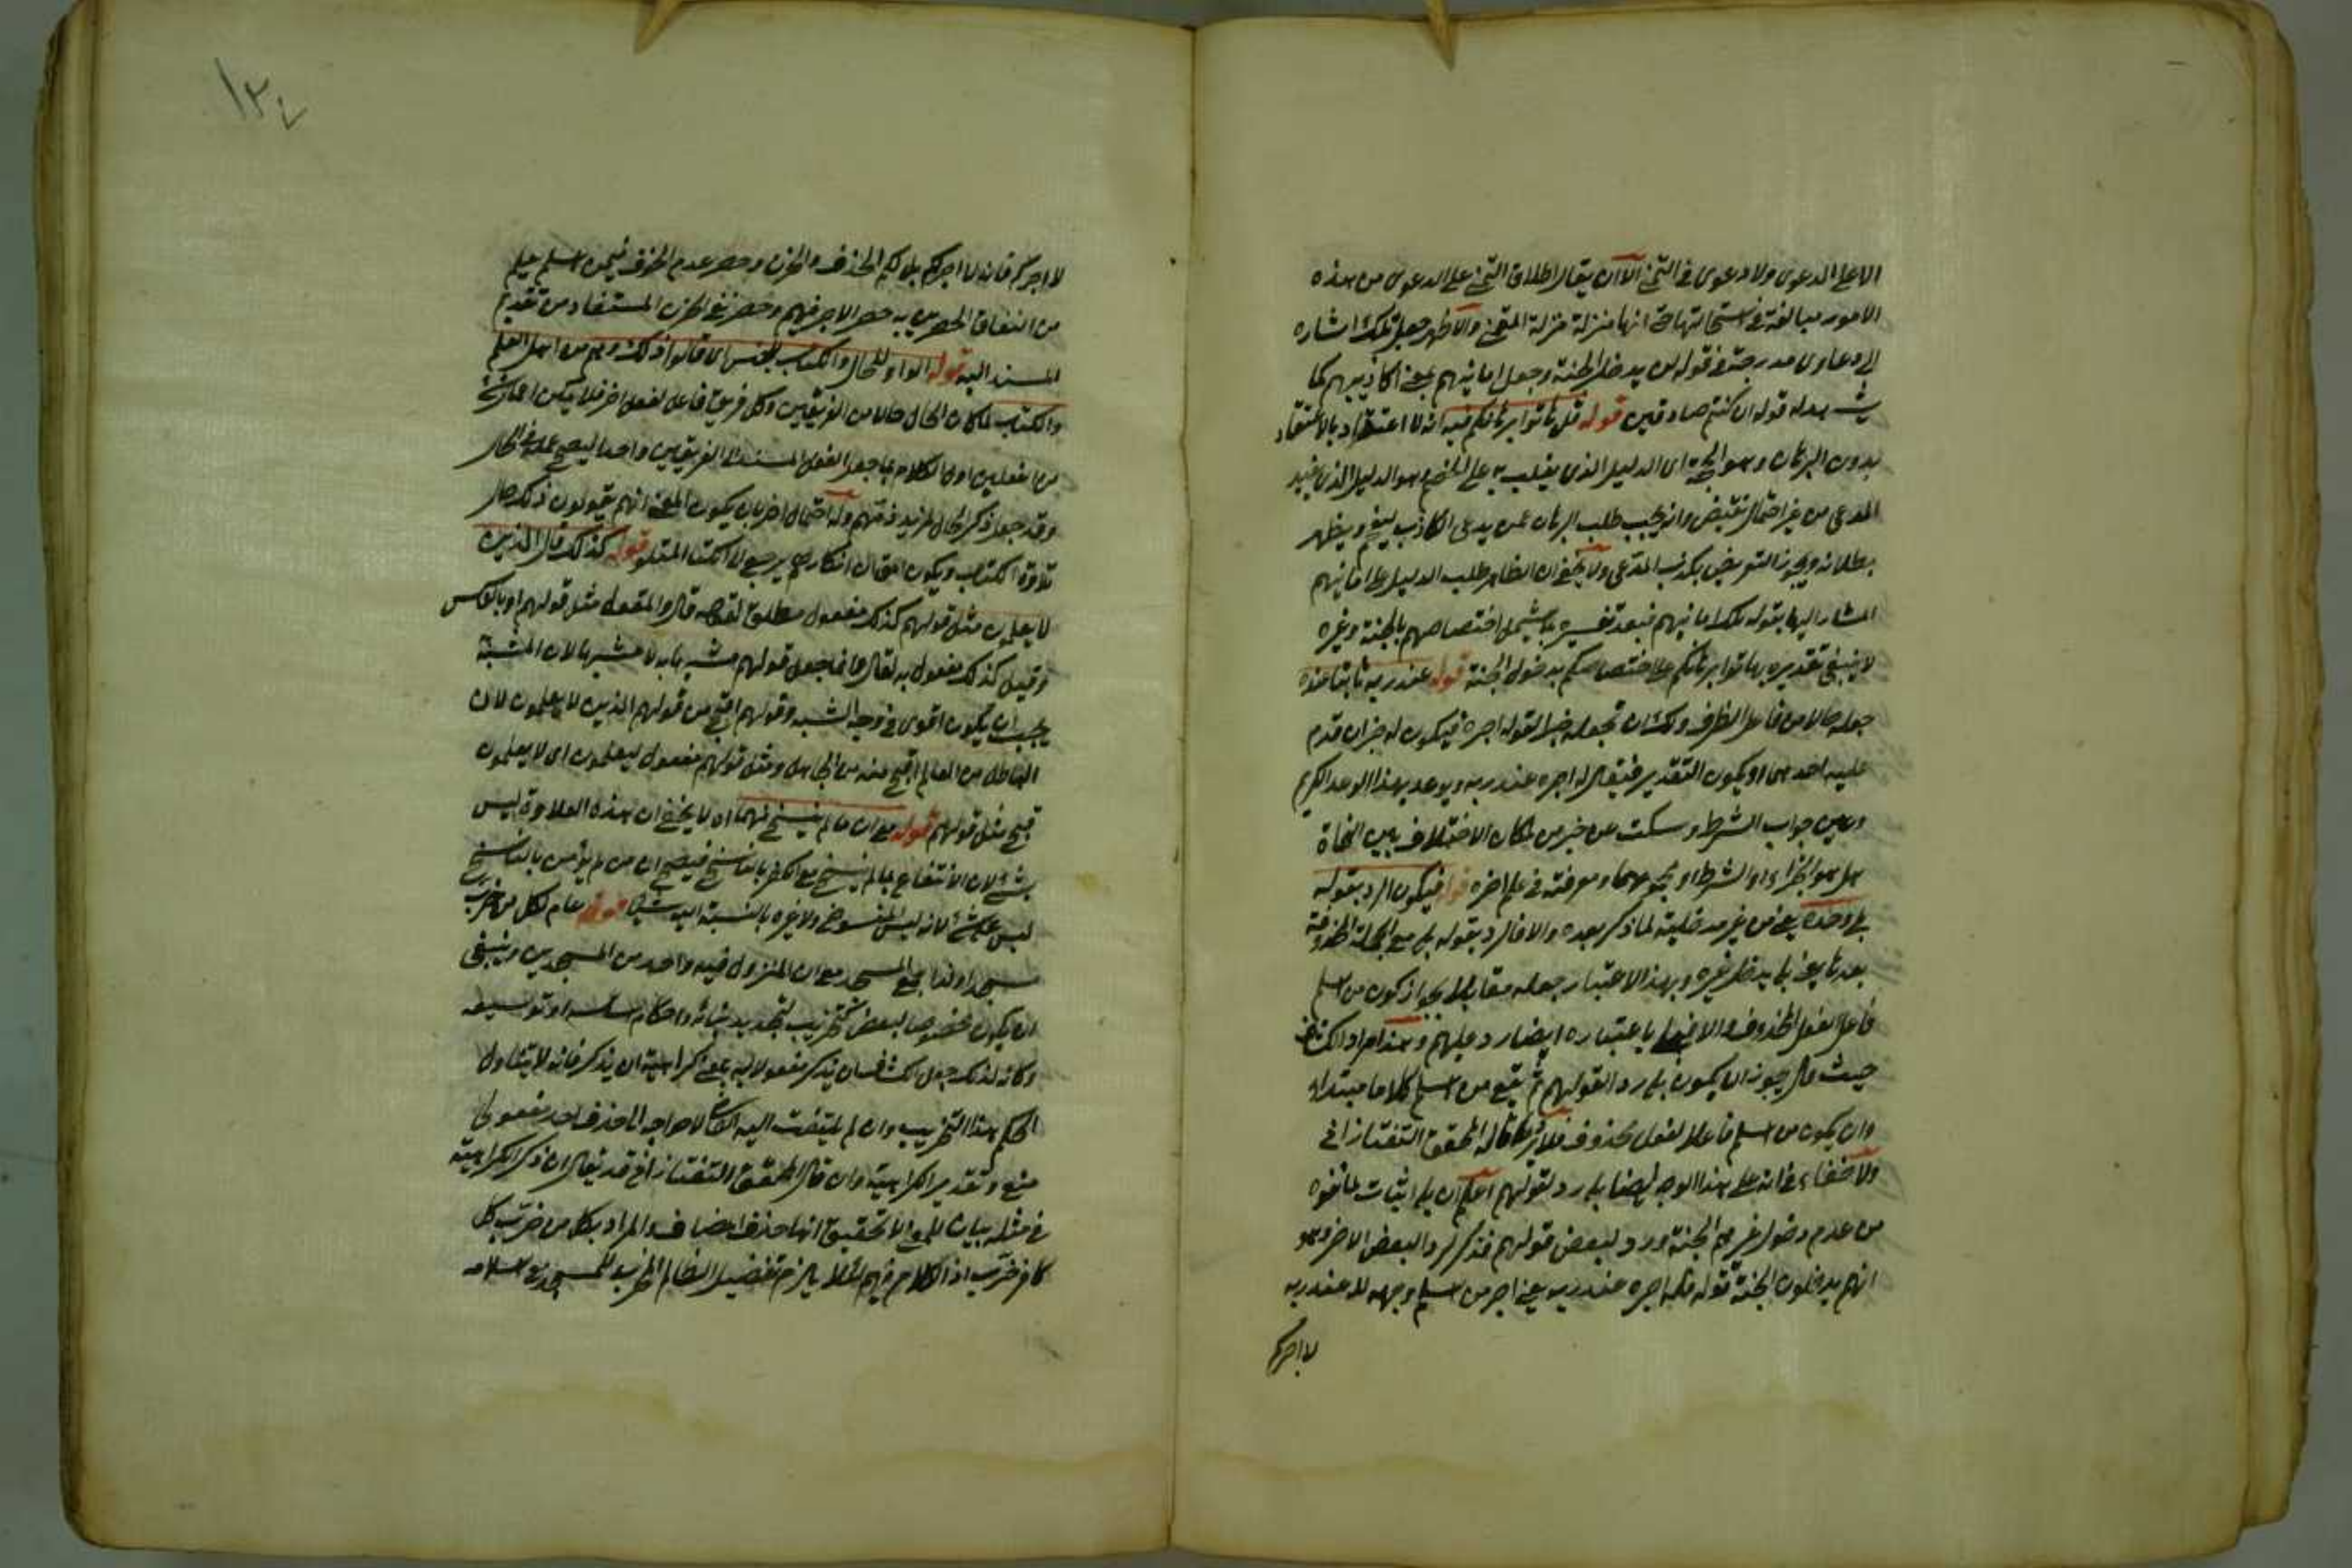 الا على الدعوى ولا دعوى في التمني الا ان يقال اطلاق التمني على الدعوى من هذه
الامور مبالغة في استحالتها حتى انها منزلة منزلة المتمنى والاظهر جعل تلك اشارة
الى دعاوى مدرجة في قوله لن يدخل الجنة وجعل امانيهم بمعنى اكاذيبهم كما
يشهد له قوله ان كنتم صادقين قوله قل هاتوا برهانكم فيه انه لا اعتداد بالاعتقاد
بدون البرهان وهو الحجة اي الدليل الذي يغلب به على الخصم وهو الدليل الذي يفيد
المدعى من غير احتمال نقيض وانه يجب طلب البرهان عمن يدعي الكاذب ليفحم ويظهر
بطلانه ويجوز التعريض بكذب المدعي ولا يخفى ان الظاهر طلب الدليل على امانيهم
المشار اليها بقوله تلك امانيهم فبعد تفسيره بما يشمل اختصاصهم بالجنة وغيره
لا ينبغي تقديره بهاتوا برهانكم على اختصاصكم بدخول الجنة قوله عند ربه ثابتا عنده
جعله حالا من فاعل الظرف ولك ان تجعله خبرا لقوله اجره فيكون له خبران قدم
عليه احدهما او يكون التقدير فيقال له اجره عند ربه ويوعد بهذا الوعد الكريم
وبين جواب الشرط وسكت عن خبر من لمكان الاختلاف بين النحاة
هل هو الجزاء او الشرط او مجموعهما ومعرفته في علم اخره قوله فيكون الرد بقوله
بلى وحده يعني من غير مدخلية لما ذكر بعده والا فالرد بقوله بلى مع الجملة المحذوفة
بعدها يعني بلى يدخل غيره وبهذا الاعتبار جعله مقابلا لجواز كون من اسلم
فاعل الفعل المحذوف والا فبلى باعتباره ايضا رد عليهم وهذا مراد الكشاف
حيث قال يجوز ان يكون بلى ردا لقولهم ثم يقع من اسلم كلاما مبتدأ
وان يكون من اسلم فاعلا لفعل محذوف فلا يرد ما قاله المحقق التفتازاني
ولا خفاء في انه على هذا الوجه ايضا بلى رد لقولهم اعلم ان بلى اثبات لما نفوه
من عدم دخول غيرهم الجنة ورد لبعض قولهم فذكر لرد البعض الاخر وهو
انهم يدخلون الجنة قوله فله اجره عند ربه يعني اجر من اسلم وجهه لله عند ربه
لا اجركم
١٣٤
لا اجركم فانه لا اجر لكم بل لكم الخوف والحزن وحصر عدم الخوف فيمن اسلم يعلم
من اتفاق الحصرين به حصر الاجر فيهم وحصر نفي الحزن المستفاد من تقديم
المسند اليه قوله الواو للحال والكتاب للجنس اي قالوا ذلك وهم من اهل العلم
والكتاب لما كان الحال حالا من الفريقين وكل فريق فاعل لفعل اخر فلا يكون
من الفعلين اول الكلام بما جعل الفعل المسند الى الفريقين واحدا ليصح عمله في الحال
وقد جعل ذكر الحال لمزيد ذمهم وله احتمال اخر بان يكون المعنى انهم يقولون ذلك حال
تلاوة الكتاب ويكون المقال انكارهم يرجع الى الكتاب المتلو قوله كذلك قال الذين
لا يعلمون مثل قولهم كذلك مفعول مطلق لقوله قال والمقول مثل قولهم او بالعكس
وقيل كذلك مفعول به لقال وانما جعل قولهم مشبها به لا مشبها لان المشبه به
يجب ان يكون اقوى في وجه الشبه وقولهم اقبح من قول الذين لا يعلمون لان
الباطل من العالم اقبح منه من الجاهل ومثل قولهم مفعول ليعلمون اي لا يعلمون
قبح مثل قولهم قوله مع ان ما لم ينسخ منهما اه لا يخفى ان هذه العلاوة ليس
بشئ لان الانتفاع بما لم ينسخ مع الكفر بالناسخ فيصح ان من لم يؤمن بالناسخ
ليس على شئ لانه ليس المنسوخ ولا غيره بالنسبة اليه شيئا قوله عام لكل من خرب
مسجدا ولذا جمع المسجد مع ان المنزول فيه واحد من المسجدين وينبغي
ان يكون مخصوصا لبعض تخريب لتجديد بنائه واحكام اساسه او توسيعه
وكانه لذلك جعل الكشاف ان يذكر مفعولا له بمعنى كراهية ان يذكر فانه لا يتناول
الحكم هذا التخريب وان لم يلتفت اليه القاضي لاحواجه الى حذف احد مفعولي
منع وتقدير الكراهية وان قال المحقق التفتازاني قد يقال ان ذكر الكراهية
في مثله بيان للمعنى لا تحقيق انها حذف المضاف والمراد بكل من خرب كل
كافر خرب اذ الكلام فيهم لئلا يلزم تفضيل الظالم المخرب للمسجد مع اسلامه